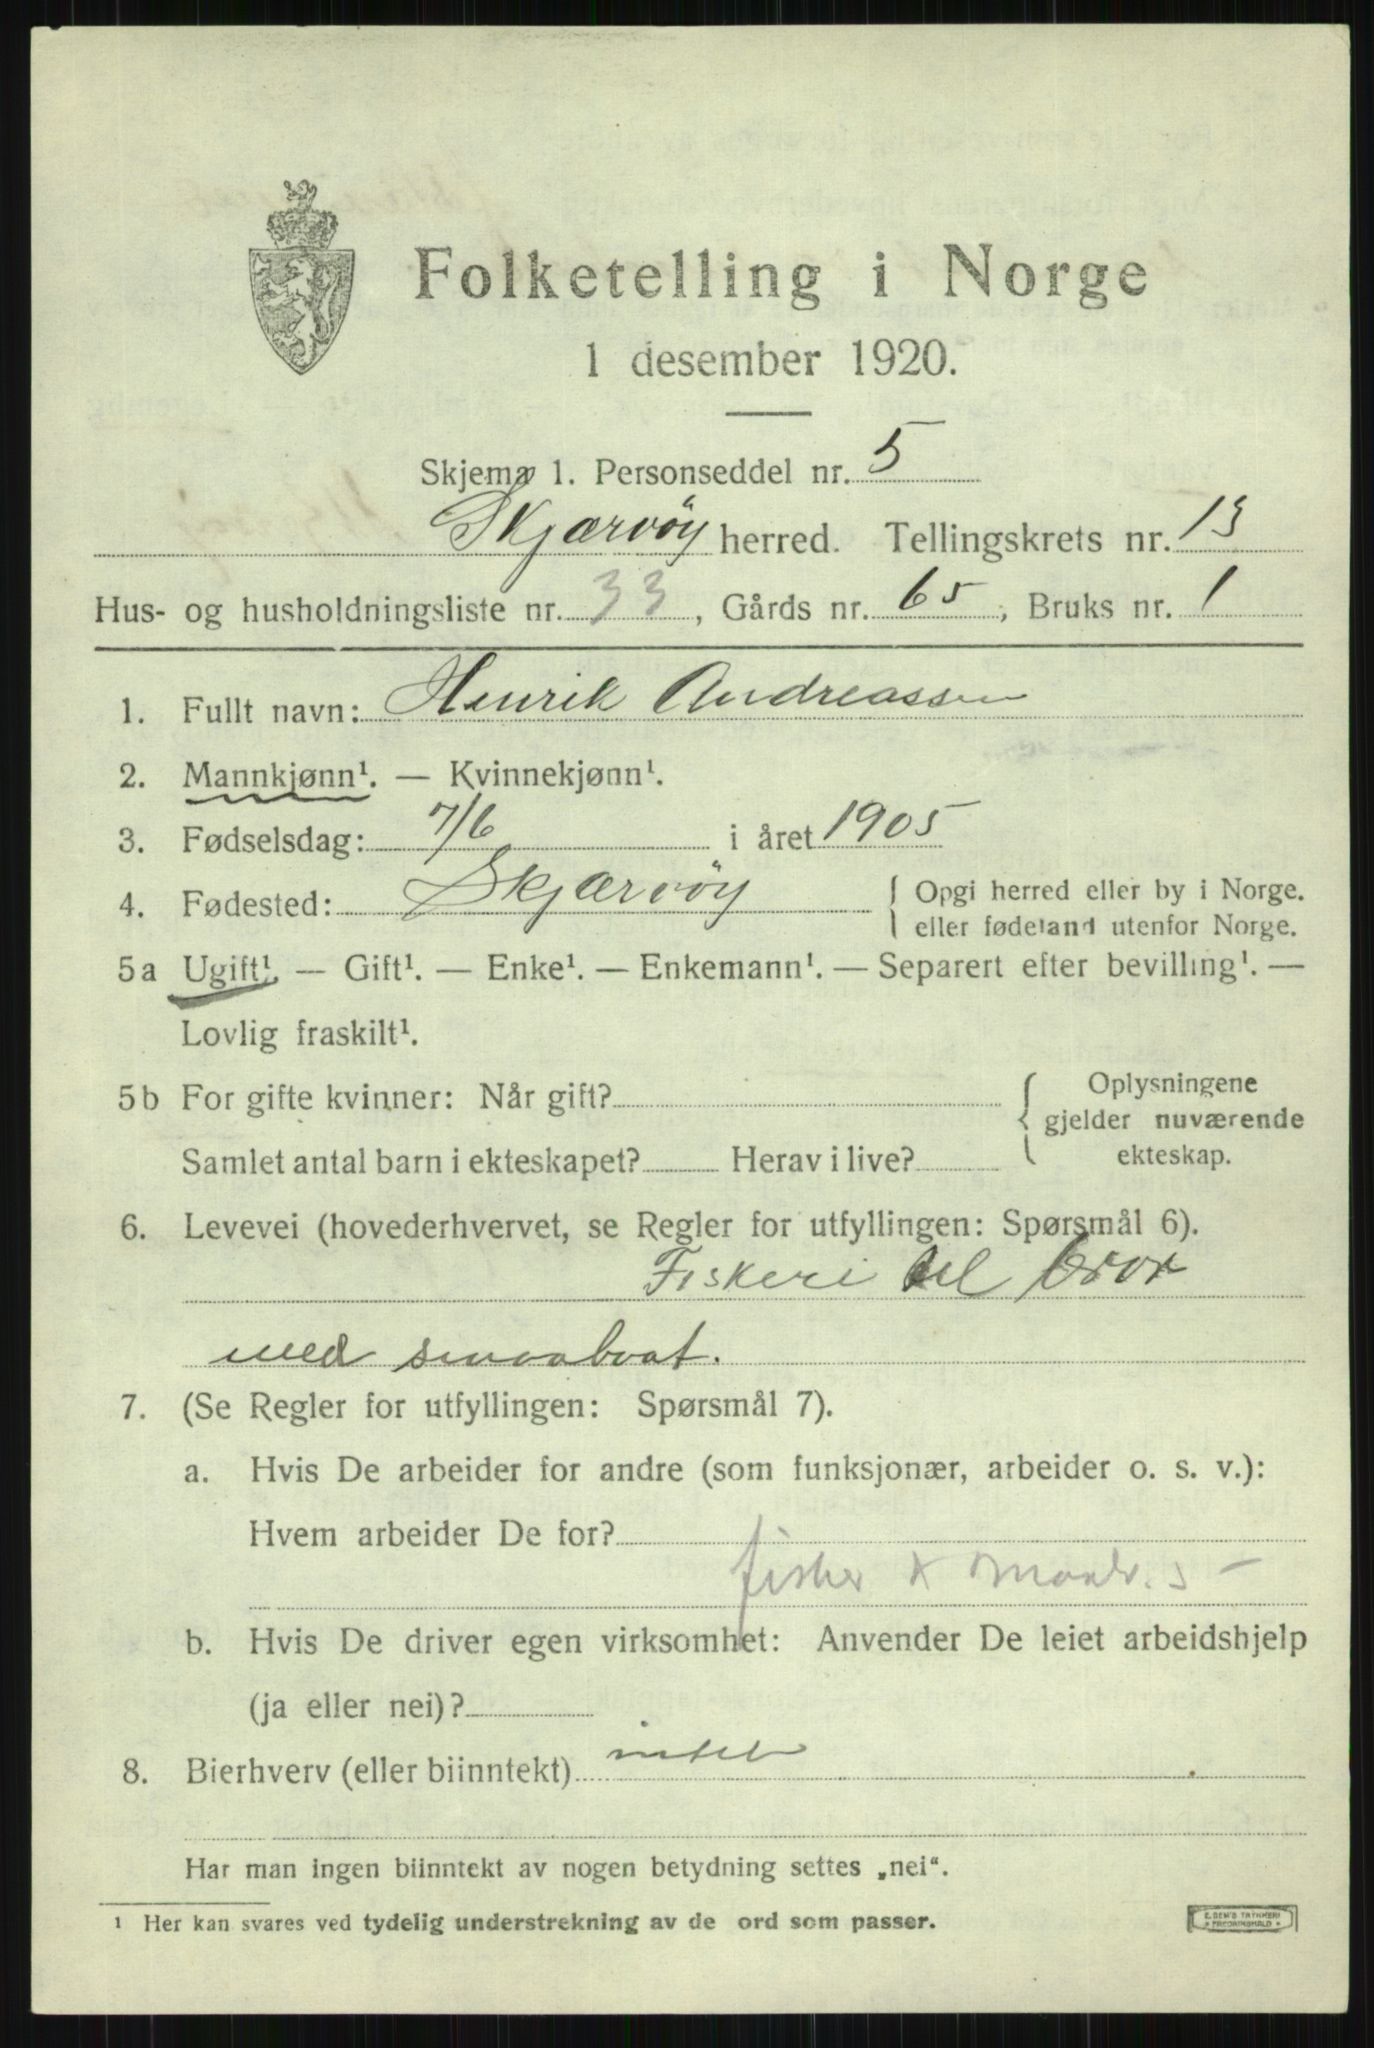 Folketelling i Norge
1 desember 1920.
Skjema 1. Personseddel nr. 5
Skjærvöy herred. Tellingskrets nr. 13
Hus- og husholdningsliste nr. 33, Gårds nr. 65, Bruks nr. 1
1. Fullt navn: Henrik Andreassen
2. Mannkjønn¹. — Kvinnekjønn¹.
3. Fødselsdag: 7/6 i året 1905
4. Fødested: Skjærvöy { Opgi herred eller by i Norge.
eller fødeland utenfor Norge.
5a Ugift¹. — Gift¹. — Enke¹. — Enkemann¹. — Separert efter bevilling¹. —
Lovlig fraskilt¹.
5b For gifte kvinner: Når gift? { Oplysningene
gjelder nuværende
Samlet antal barn i ekteskapet? Herav i live? ekteskap.
6. Levevei (hovederhvervet, se Regler for utfyllingen: Spørsmål 6).
Fiskeri til bror
med smaabaat.
7. (Se Regler for utfyllingen: Spørsmål 7).
a. Hvis De arbeider for andre (som funksjonær, arbeider o. s. v.):
Hvem arbeider De for?
fisker
b. Hvis De driver egen virksomhet: Anvender De leiet arbeidshjelp
(ja eller nei)?
8. Bierhverv (eller biinntekt) intet
Har man ingen biinntekt av nogen betydning settes „nei".
¹ Her kan svares ved tydelig understrekning av de ord som passer.